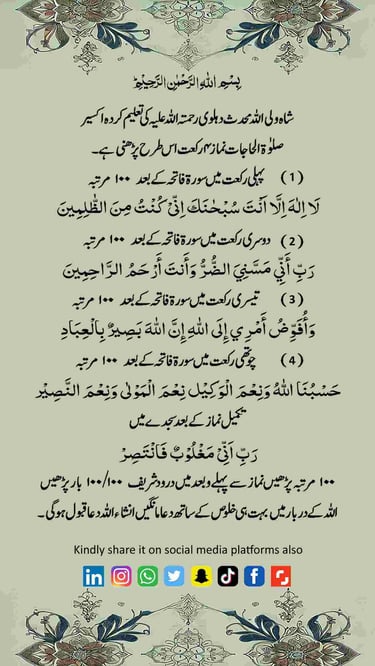 بِسْمِ اللهِ الرَّحْمٰنِ الرَّحِيْمِ
شاہ ولی اللہ محدث دہلوی رحمتہ اللہ علیہ کی تعلیم کردہ اکسیر
صلوٰۃ الحاجات نماز ۴ رکعت اس طرح پڑھنی ہے۔
(1) پہلی رکعت میں سورۃ فاتحہ کے بعد ۱۰۰ مرتبہ
لَا اِلٰهَ اِلَّا اَنْتَ سُبْحٰنَكَ اِنِّیْ كُنْتُ مِنَ الظّٰلِمِيْنَ
(2) دوسری رکعت میں سورۃ فاتحہ کے بعد ۱۰۰ مرتبہ
رَبِّ أَنِّي مَسَّنِيَ الضُّرُّ وَأَنتَ أَرْحَمُ الرَّاحِمِينَ
(3) تیسری رکعت میں سورۃ فاتحہ کے بعد ۱۰۰ مرتبہ
وَأُفَوِّضُ أَمْرِي إِلَى اللهِ إِنَّ اللهَ بَصِيرٌ بِالْعِبَادِ
(4) چوتھی رکعت میں سورۃ فاتحہ کے بعد ۱۰۰ مرتبہ
حَسْبُنَا اللهُ وَنِعْمَ الْوَكِيْل نِعْمَ الْمَوْلٰی وَنِعْمَ النَّصِيْر
تکمیل نماز کے بعد سجدے میں
رَبِّ اَنِّیْ مَغْلُوْبٌ فَانْتَصِرْ
۱۰۰ مرتبہ پڑھیں نماز سے پہلے و بعد میں درود شریف ۱۰۰/۱۰۰ بار پڑھیں
اللہ کے دربار میں بہت ہی خلوص کے ساتھ دعا مانگیں انشاء اللہ دعا قبول ہوگی۔
Kindly share it on social media platforms also